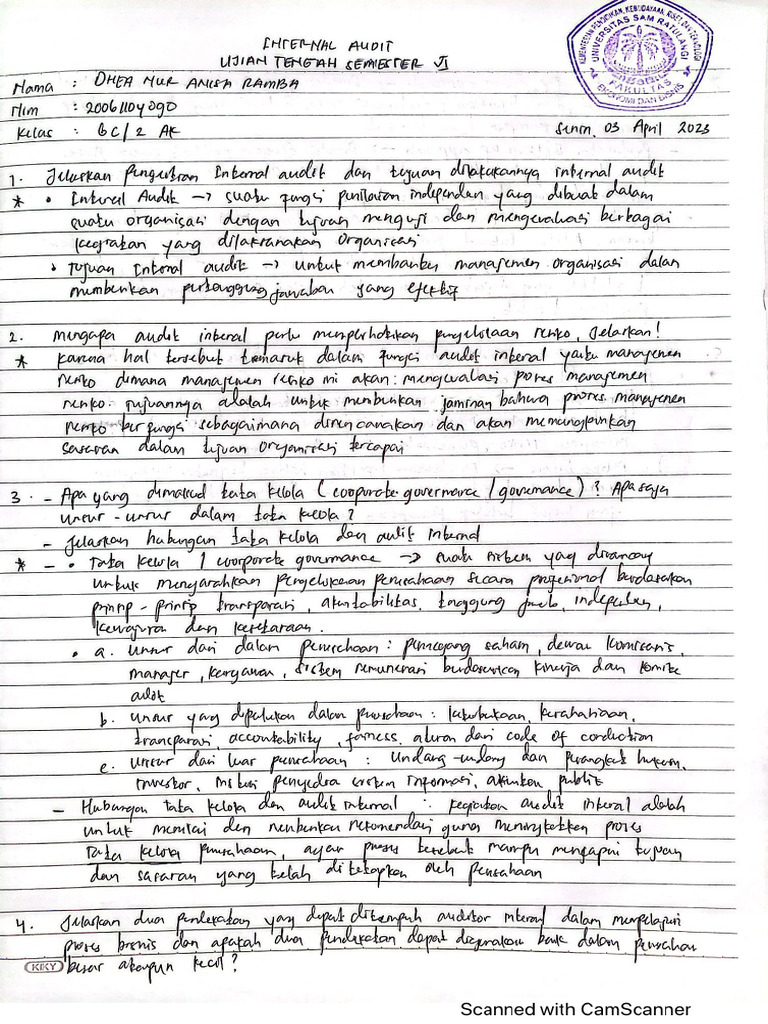 INTERNAL AUDIT
UJIAN TENGAH SEMESTER VI
KEMENTERIAN PENDIDIKAN, KEBUDAYAAN, RISET, DAN TEKNOLOGI
UNIVERSITAS SAM RATULANGI
FAKULTAS
EKONOMI DAN BISNIS
Nama : DHEA NUR ANISA RAMBA
Nim : 20061104090
Kelas : 6C/2 AK
Senin, 03 April 2023
1. Jelaskan pengertian Internal audit dan tujuan dilakukannya internal audit
* • Internal Audit → suatu fungsi penilaian independen yang dibuat dalam
suatu organisasi dengan tujuan menguji dan mengevaluasi berbagai
kegiatan yang dilaksanakan organisasi
• Tujuan Internal audit → untuk membantu manajemen organisasi dalam
memberikan pertanggung jawaban yang efektif
2. Mengapa audit internal perlu memperhatikan pengelolaan resiko, jelaskan!
* karena hal tersebut termasuk dalam fungsi audit internal yaitu manajemen
resiko dimana manajemen resiko ini akan mengevaluasi proses manajemen
resiko. Tujuannya adalah untuk memberikan jaminan bahwa proses manajemen
resiko berfungsi sebagaimana direncanakan dan akan memungkinkan
sasaran dalam tujuan organisasi tercapai
3. - Apa yang dimaksud tata kelola (coorporate governance / governance)? Apa saja
unsur-unsur dalam tata kelola?
- Jelaskan hubungan tata kelola dan audit internal
* - • Tata kelola / coorporate governance → suatu sistem yang dirancang
untuk mengarahkan pengelolaan perusahaan secara profesional berdasarkan
prinsip-prinsip transparasi, akuntabilitas, tanggung jawab, independen,
kewajaran dan kesetaraan.
• a. Unsur dari dalam perusahaan : pemegang saham, dewan komisaris,
manajer, karyawan, sistem remunerasi berdasarkan kinerja dan komite
audit
b. Unsur yang diperlukan dalam perusahaan : keterbukaan, kerahasiaan,
transparasi, accountability, fairness, aturan dari code of conduction
c. Unsur dari luar perusahaan : Undang-undang dan perangkat hukum,
investor, institusi penyedia sistem informasi, akuntan publik
- Hubungan tata kelola dan audit internal : kegiatan audit internal adalah
untuk menilai dan memberikan rekomendasi guna meningkatkan proses
tata kelola perusahaan, agar proses tersebut mampu mencapai tujuan
dan sasaran yang telah ditetapkan oleh perusahaan
4. Jelaskan dua pendekatan yang dapat ditempuh auditor internal dalam mempelajari
proses bisnis dan apakah dua pendekatan dapat digunakan baik dalam perusahaan
besar ataupun kecil?
KIKY
Scanned with CamScanner